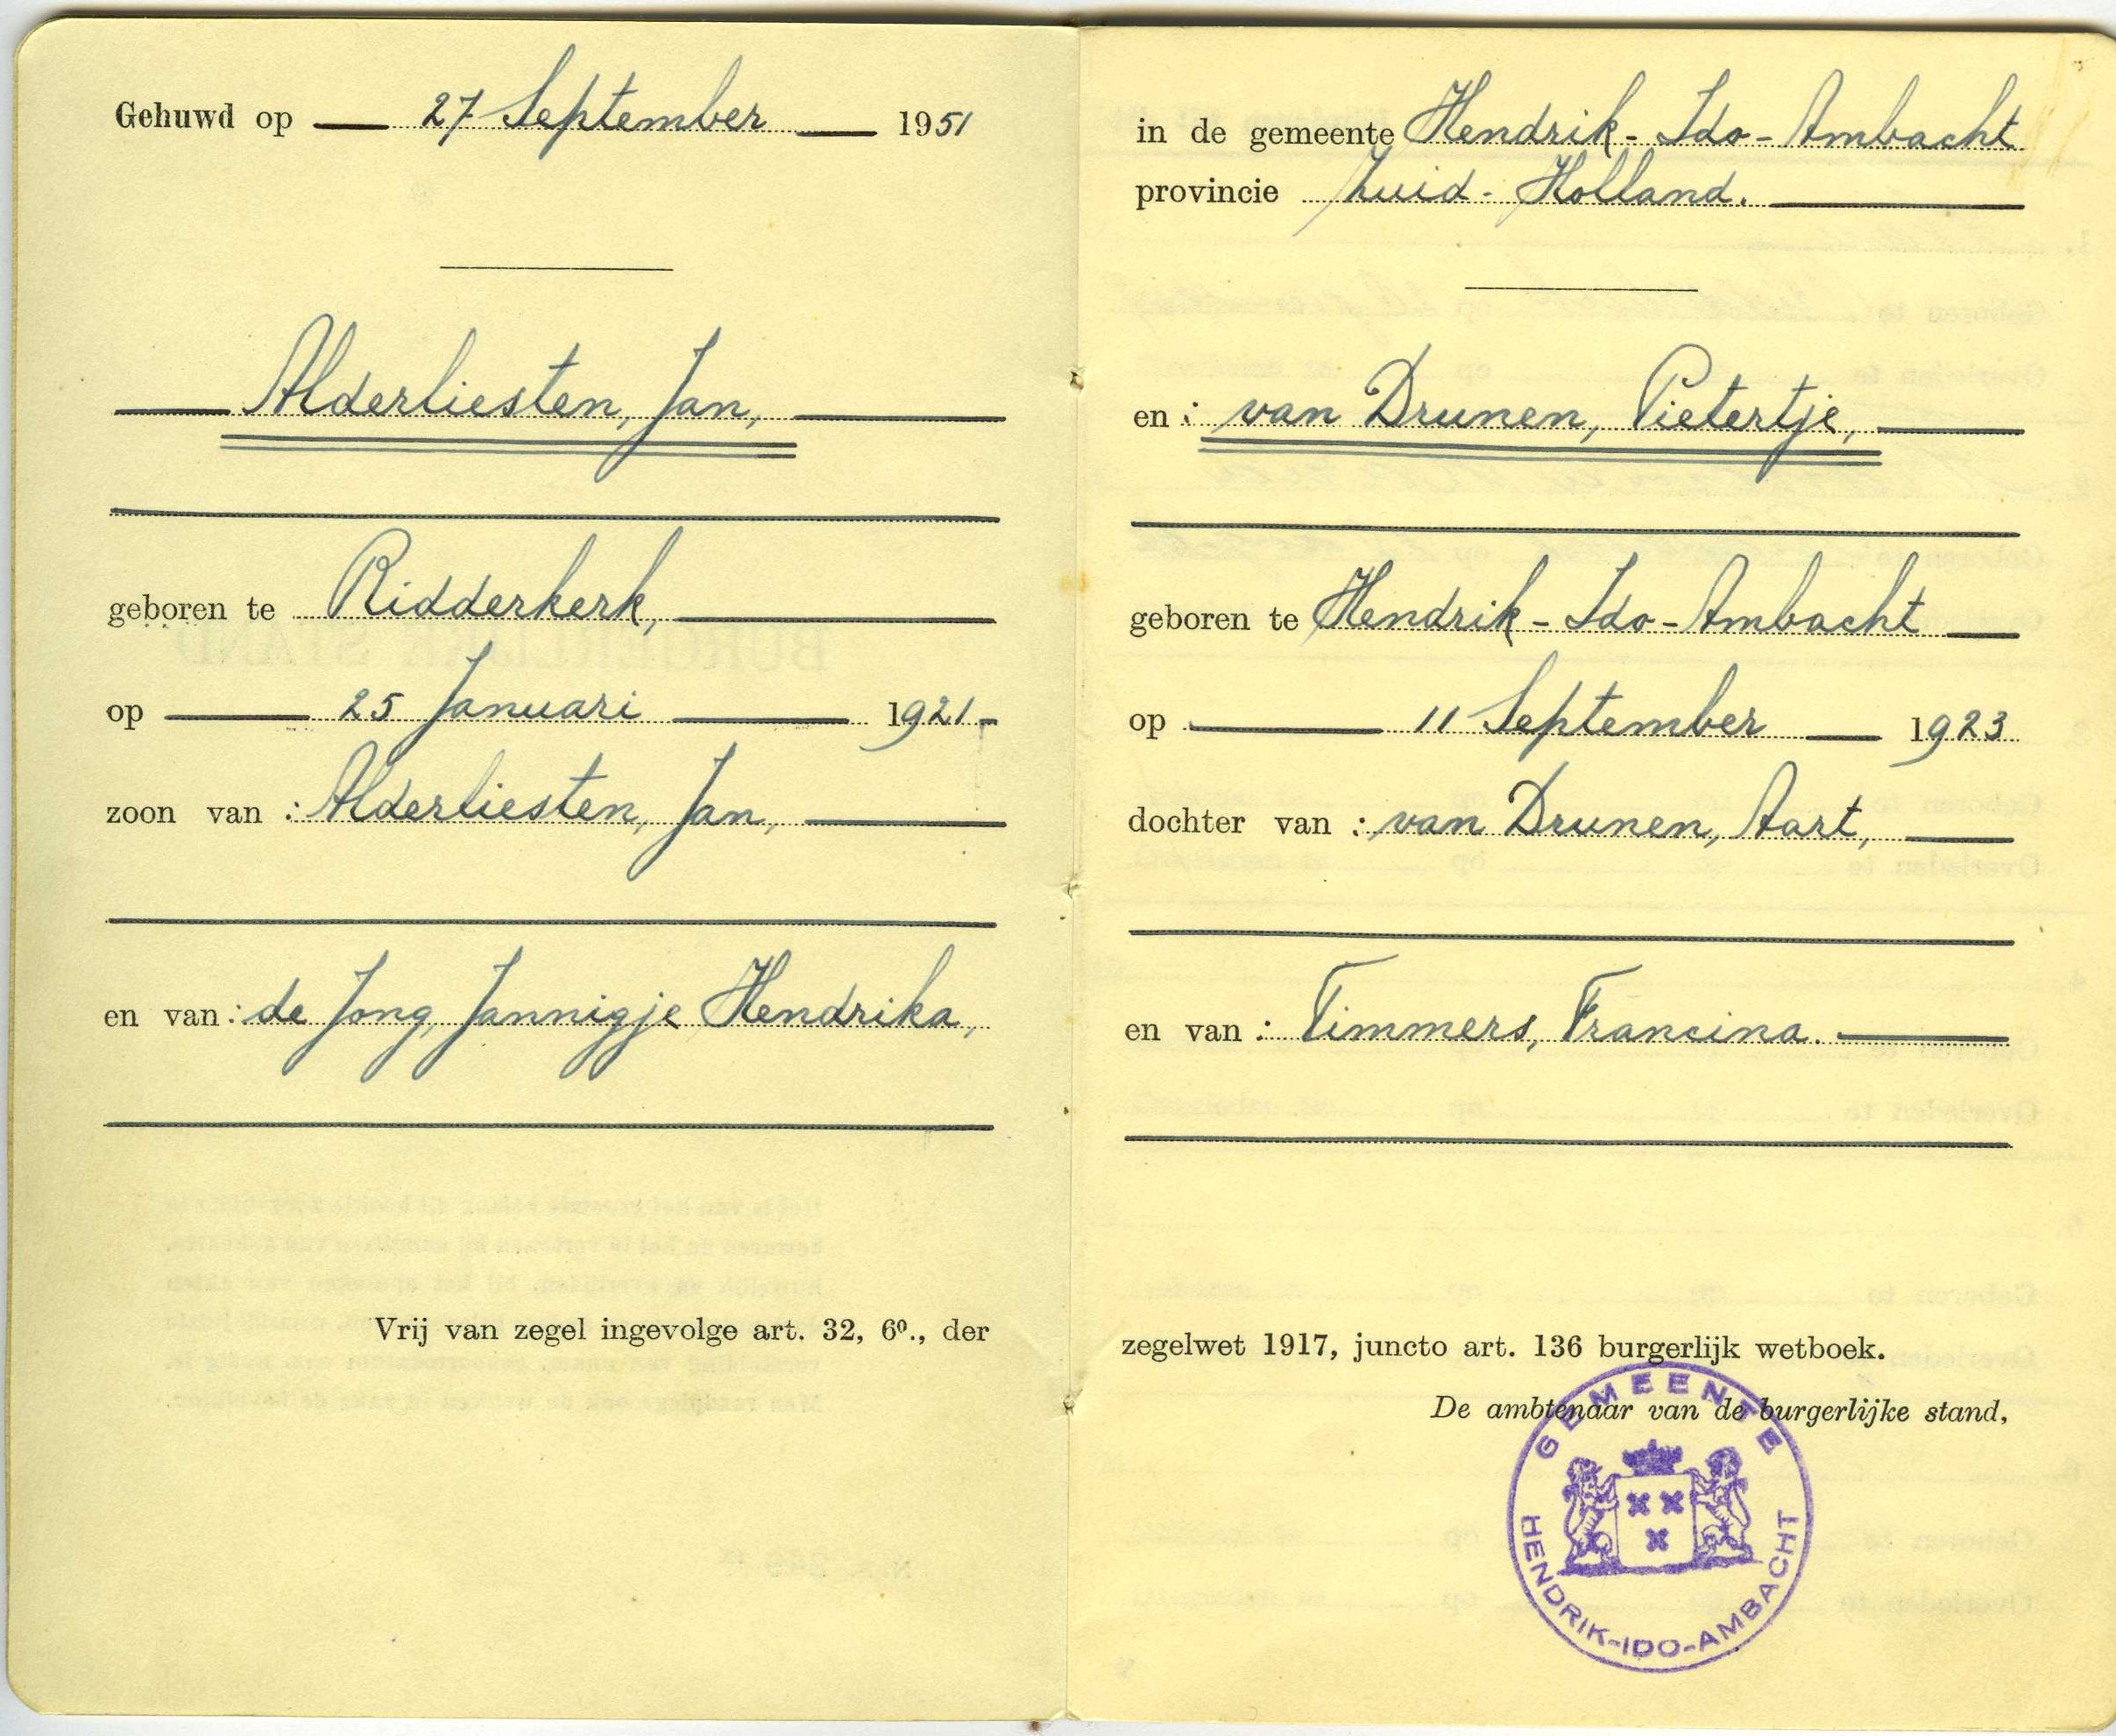 Gehuwd op 27 September 1951
Alderliesten, Jan,
geboren te Ridderkerk,
op 25 Januari 1921
zoon van : Alderliesten, Jan,
en van : de Jong, Jannigje Hendrika,
Vrij van zegel ingevolge art. 32, 6º., der
in de gemeente Hendrik-Ido-Ambacht
provincie Zuid-Holland.
en : van Drunen, Pietertje,
geboren te Hendrik-Ido-Ambacht
op 11 September 1923
dochter van : van Drunen, Aart,
en van : Timmers, Francina.
zegelwet 1917, juncto art. 136 burgerlijk wetboek.
De ambtenaar van de burgerlijke stand,
GEMEENTE
HENDRIK-IDO-AMBACHT